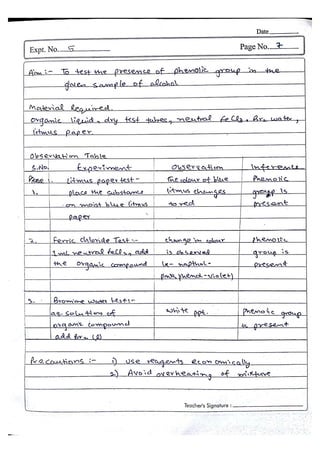 Date
Expt. No. 5
Page No. 7
Aim:- To test the presence of phenolic group in the
given sample of alcohol
Material Required.
Organic liquid, dry test tubes, neutral FeCl3, Br2 water,
litmus paper.
Observation Table
S.No. Experiment Observation Inference
1. Litmus paper test- The colour of blue Phenolic
place the substance litmus changes group is
on moist blue litmus to red present
paper
2. Ferric Chloride Test:- change in colour phenolic
1 ml neutral FeCl3, add is observed group is
the organic compound ie- napthal- present
pink, phenol-violet)
3. Bromine water test:-
aq. solution of white ppt. Phenolic group
organic compound is present
add Br2 (l)
Precautions :- 1) Use reagents economically
2) Avoid overheating of mixture
Teacher's Signature :